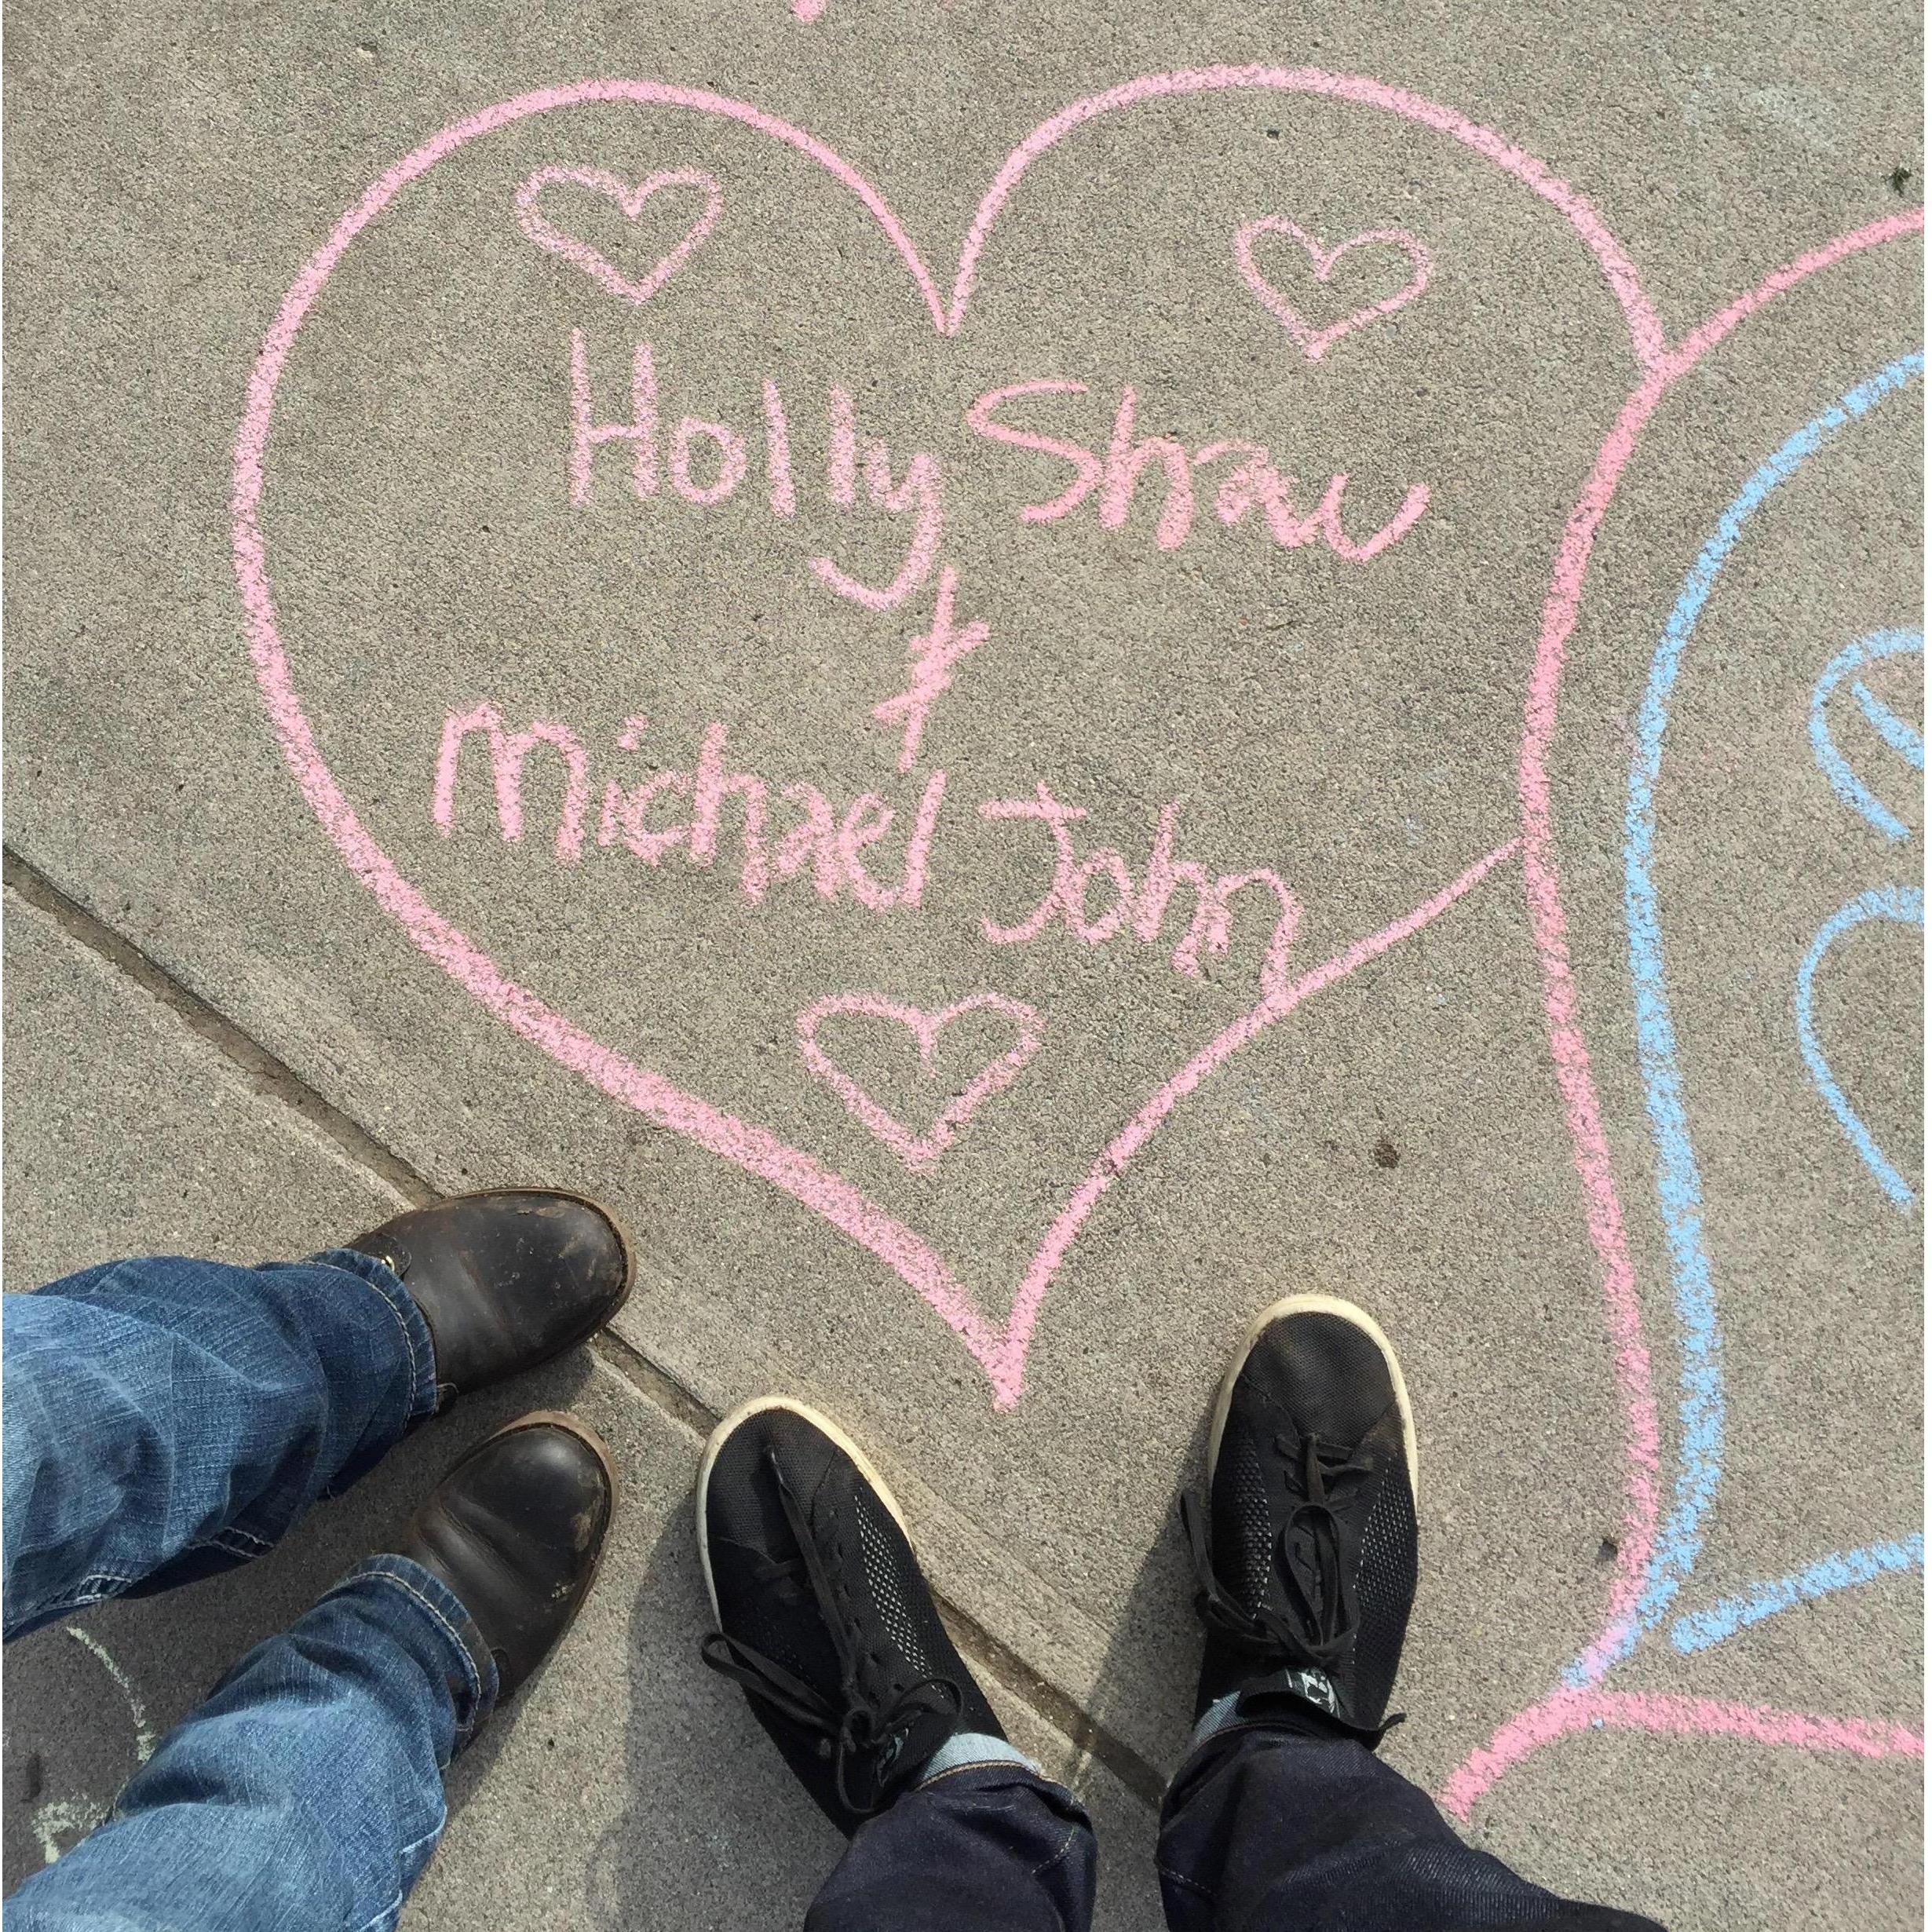 Holly Shaw
+
Michael John